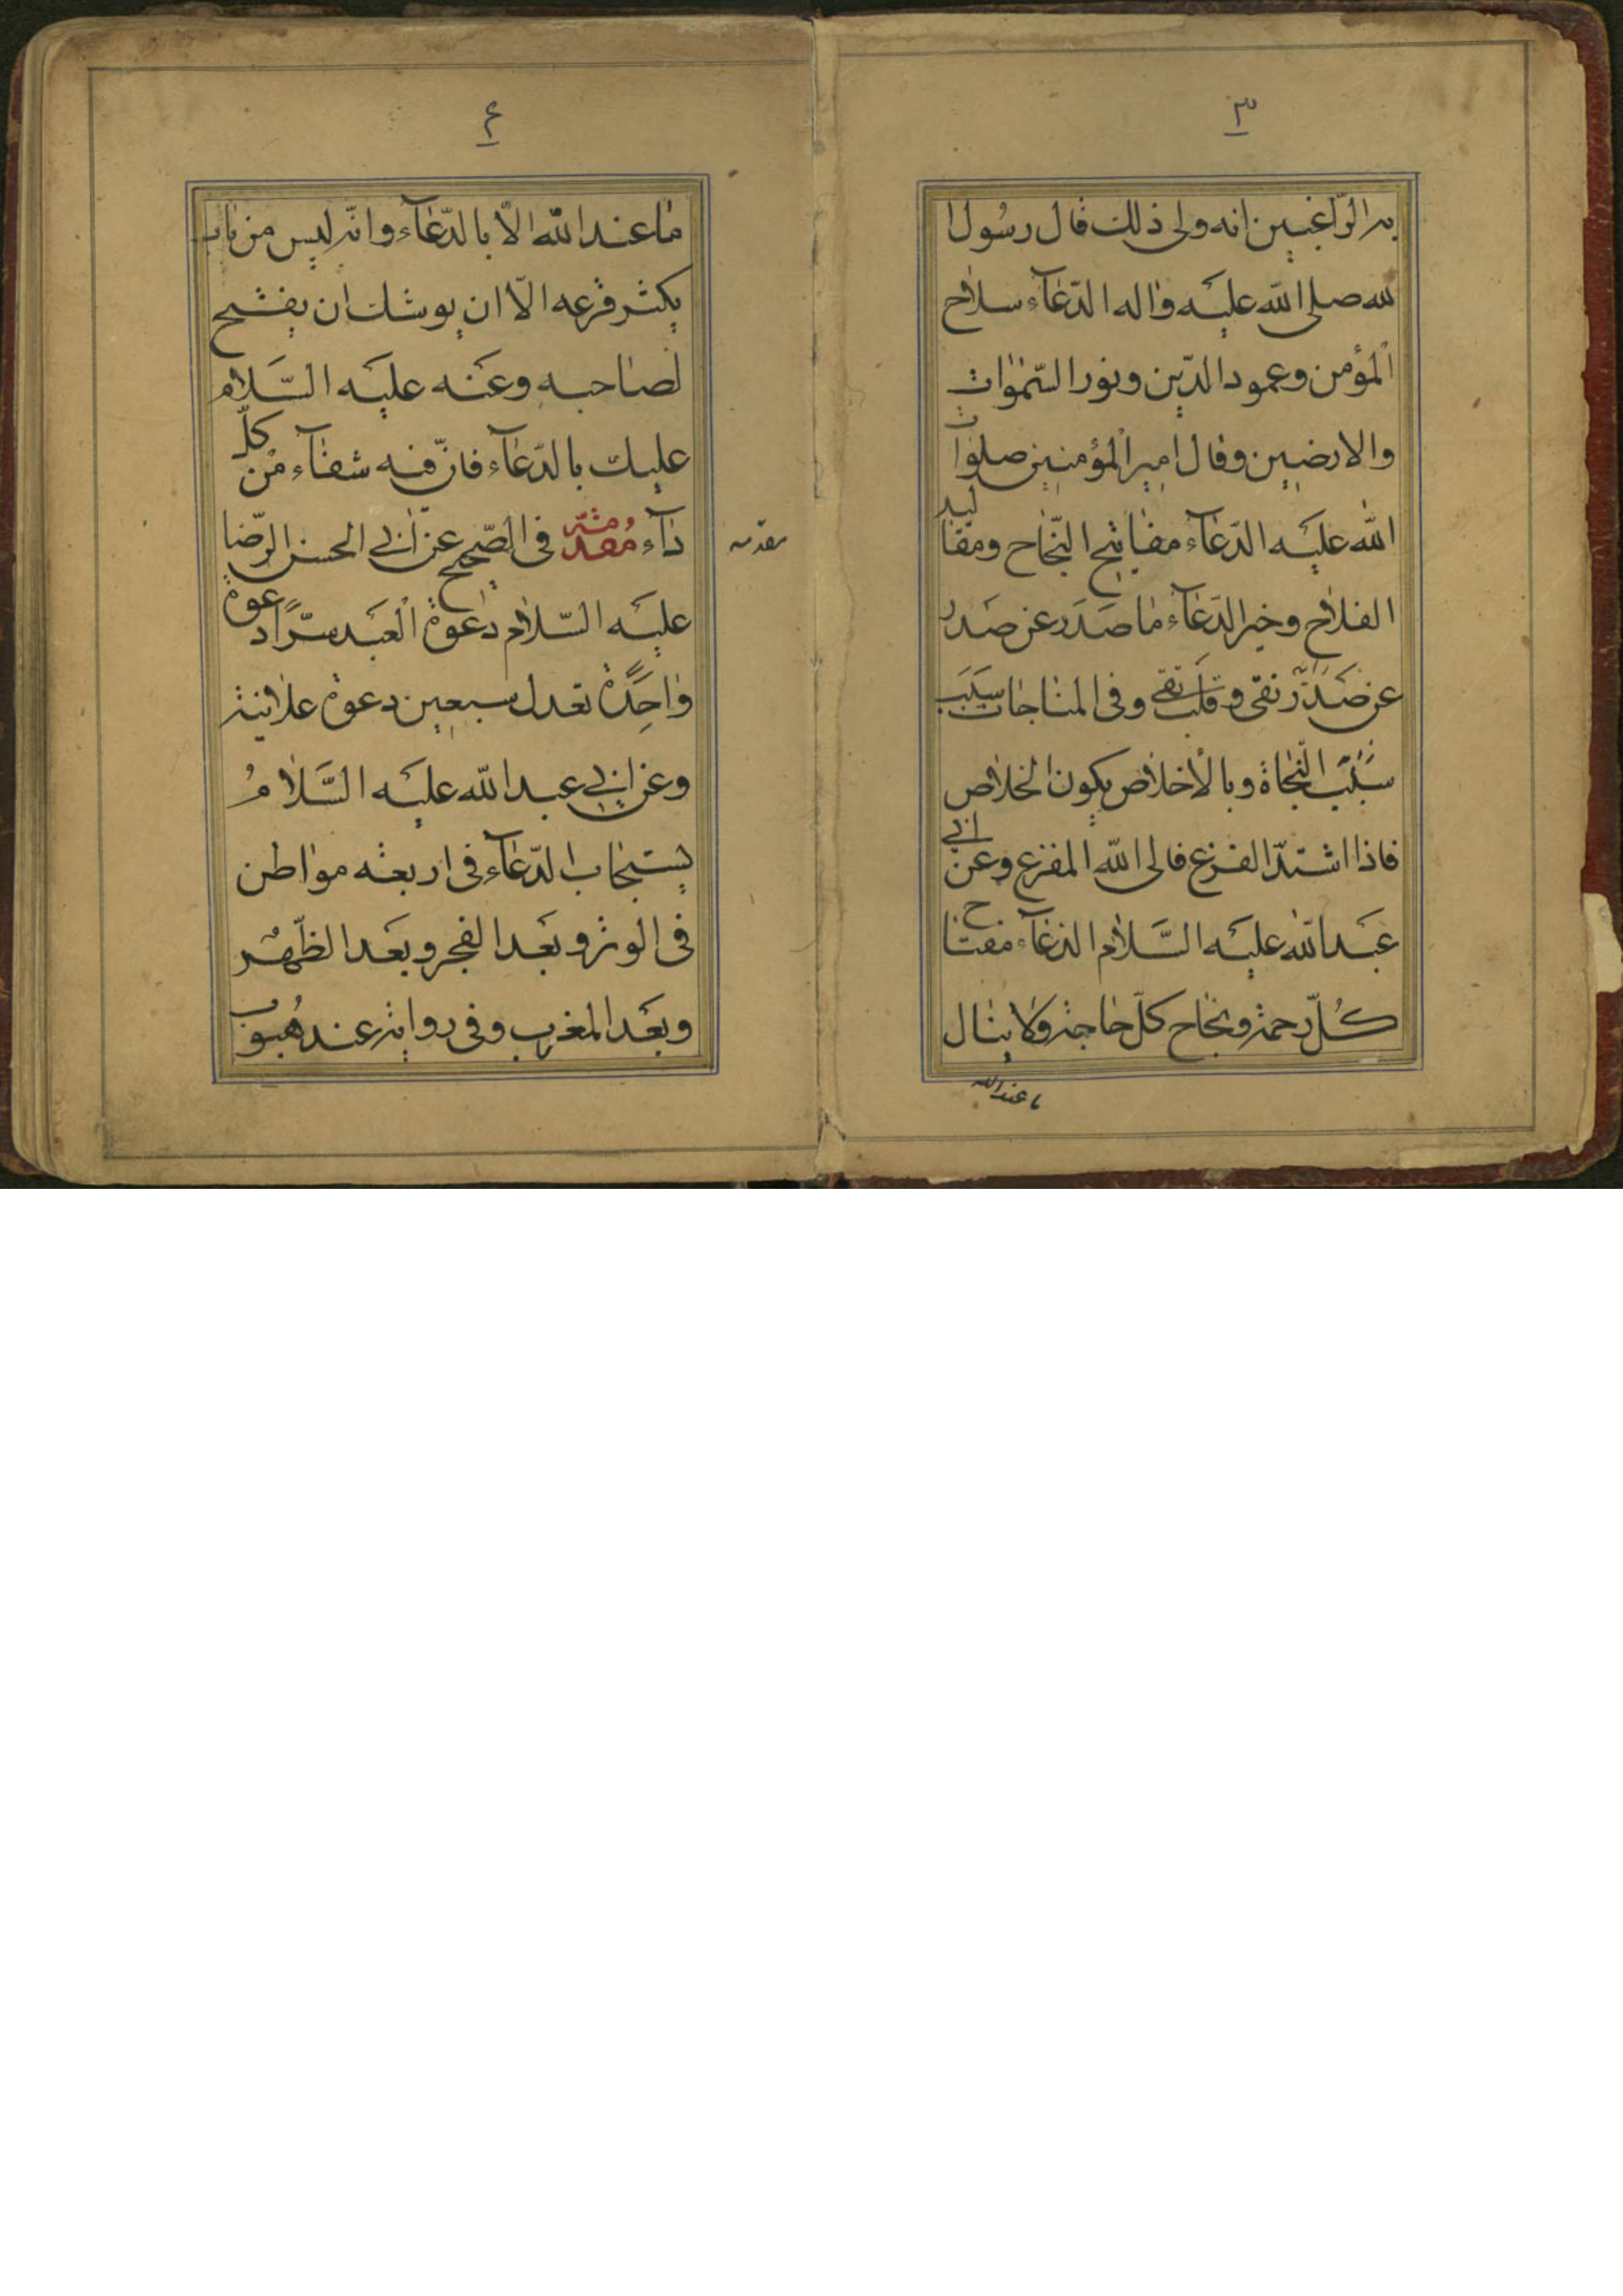 ٣
به الراغبین انه ولی ذلک قال رسُول ا
لله صلی الله علیه واله الدّعآء سلاح
الْمؤمن وعمود الدّین ونور السّمٰوات
والارضین وقال امیر الْمؤمنین صلوات
الله علیَه الدّعآء مفاتیح النّجاح ومقالید
الفلاح وخیر الدّعآء ما صَدَر عن صَدر
عن صَدر نقی وقلب تقی وفی المناجات سَبَب
سَبَب النّجاة وبالْاخلاص یکون الخلاص
فاذا اشتدّ الفزع فالی الله المفزع وعن ابی
عبَد الله علیَه السَّلام الدعآء مفتاح
کُلّ رحمة ونجاح کلّ حاجة ولا ینال
ما عند الله
٤
ما عند الله الّا بالدّعآء وانّه لیس من باب
یکثر قرعه الّا ان یوشک ان یفتح
لصاحبه وعَنه علیَه السَّلام
علیک بالدّعآء فانّ فیه شفآء مْن کلّ
دآء مُقدمة فی الصّحیح عن ابی الحسن الرّضا
علیَه السّلام دَعوة الْعبَد سرًّا دعوة
واحِدَةً تعدل سبعین دعوة علانیة
وعن ابی عبد الله علیَه السَّلامُ
یستجاب الدّعآء فی اربعة مواطن
فی الوتر وبعَد الفجر وبعَد الظّهْر
وبعَد المغرب وفی روایة عند هُبوب
مقدمه